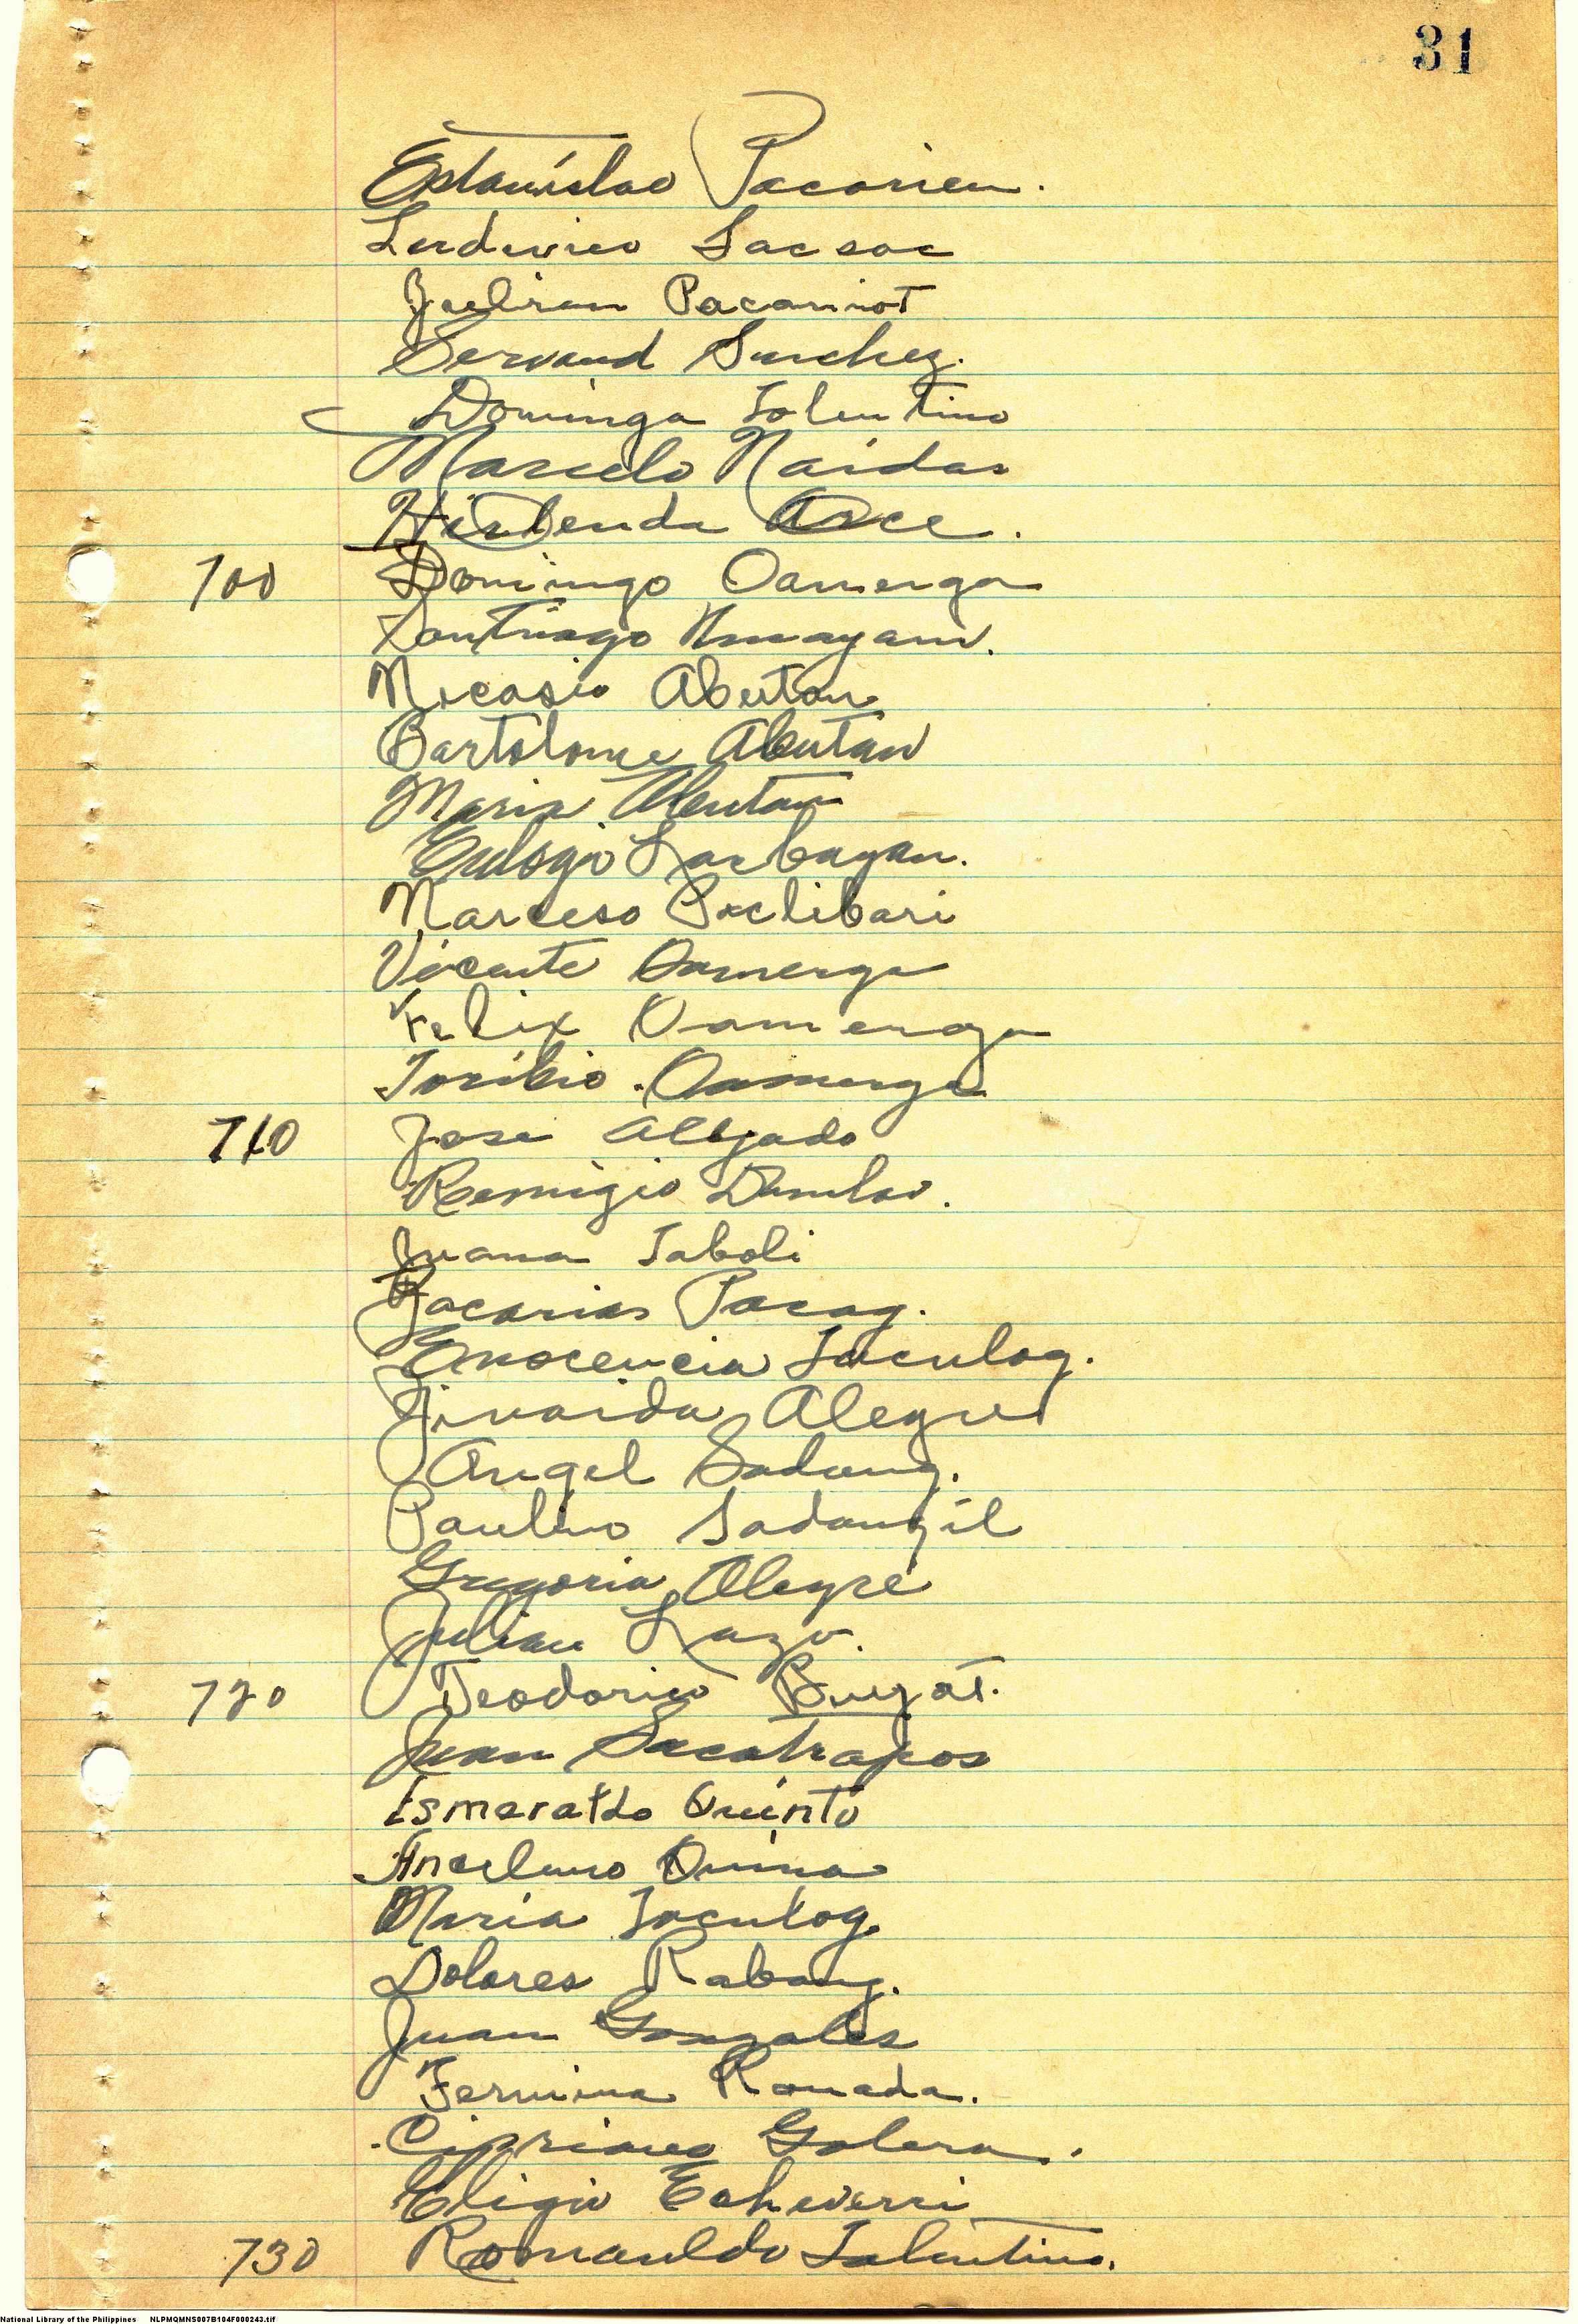 31
Estanislao Pacarien.
Ludivico Sacsac
Julian Pacarriot
Servand Sanchez.
Dominga Tolentino
Marcelo Naidas
Hirlenda Arce.
700 Domingo Oamerga
Santiago
Nicasio Abutan
Bartolome Abutan
Maria Abutan
Eulogio Larbayan.
Narceso Paclibari
Vicente Oamerga
Felix Oamerga
Toribio Oamerga
710 Jose Albjado
Remigio Damlao.
Juana Taboli
Zacarias Pacag.
Enocencia Taculog.
Alegre
Angel Sadang.
Paulino Sadangil
Gregoria Alegre
Julian Lazo.
720 Teodorico
Juan Sacatrapos
Esmeraldo Quinto
Ancelmo
Maria Taculog.
Dolores Rabang.
Juan Gonzales
Fermina Ramada.
Cipriano Galera.
Eligio Echeverri
730 Romauldo Tolentino.
National Library of the Philippines NLPMQMNS007B104F000243.tif